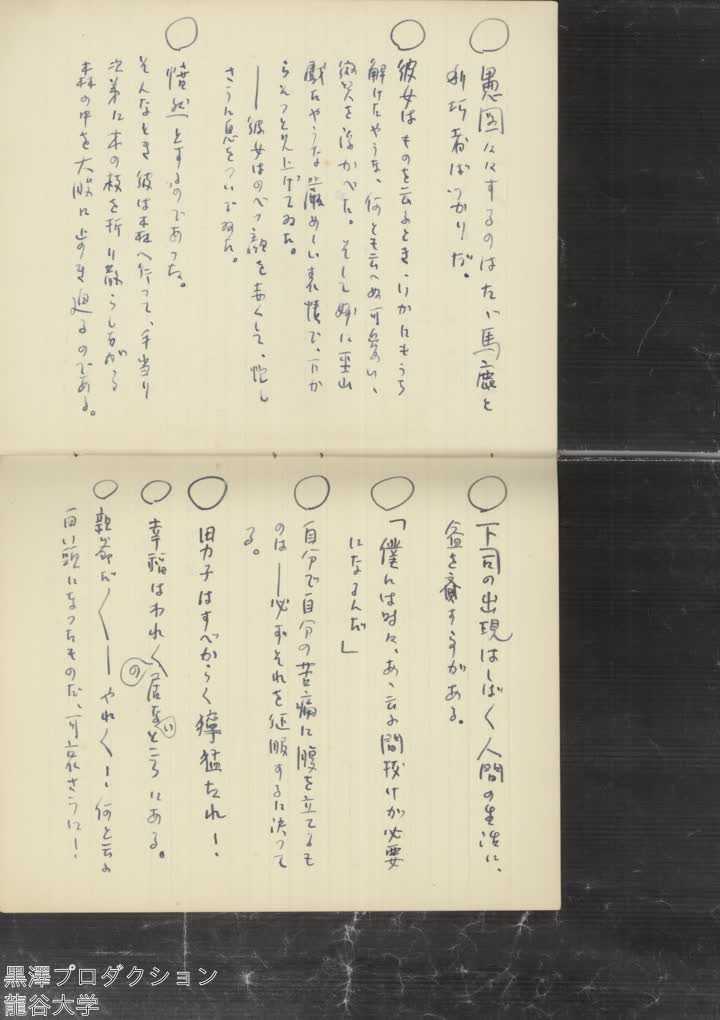 ○ 愚図々々するのはたゞ馬鹿と
利巧者ばかりだ。
○ 彼女はものを云ふとき、いかにもうち
解けたやうな、何とも云へぬ可愛いゝ
微笑を浮かべた。そして妙に
戯たやうな厳めしい表情で、下か
らそつと見上げてゐた。
——彼女はのべつ顔を赤くして、忙し
さうに息をついでゐた。
○ 憤然とするのであつた。
そんなとき彼は森へ行つて、手当り
次第に木の枝を折り散らしながら
森の中を大股に歩き廻るのである。
○ 下司の出現はしばしば人間の生活に、
益を齎す事がある。
○ 「僕には時々、あゝ云ふ間抜けが必要
になるんだ」
○ 自分で自分の苦痛に腹を立てるも
のは——必ずそれを征服するに決つて
る。
○ 男子はすべからく獰猛たれ!
○ 幸福はわれ〱の居ないところにある。
○ 親爺だ〱——やれ〱! 何と云ふ
白い頭になつたものだ、可哀さうに!
黒澤プロダクション
龍谷大学